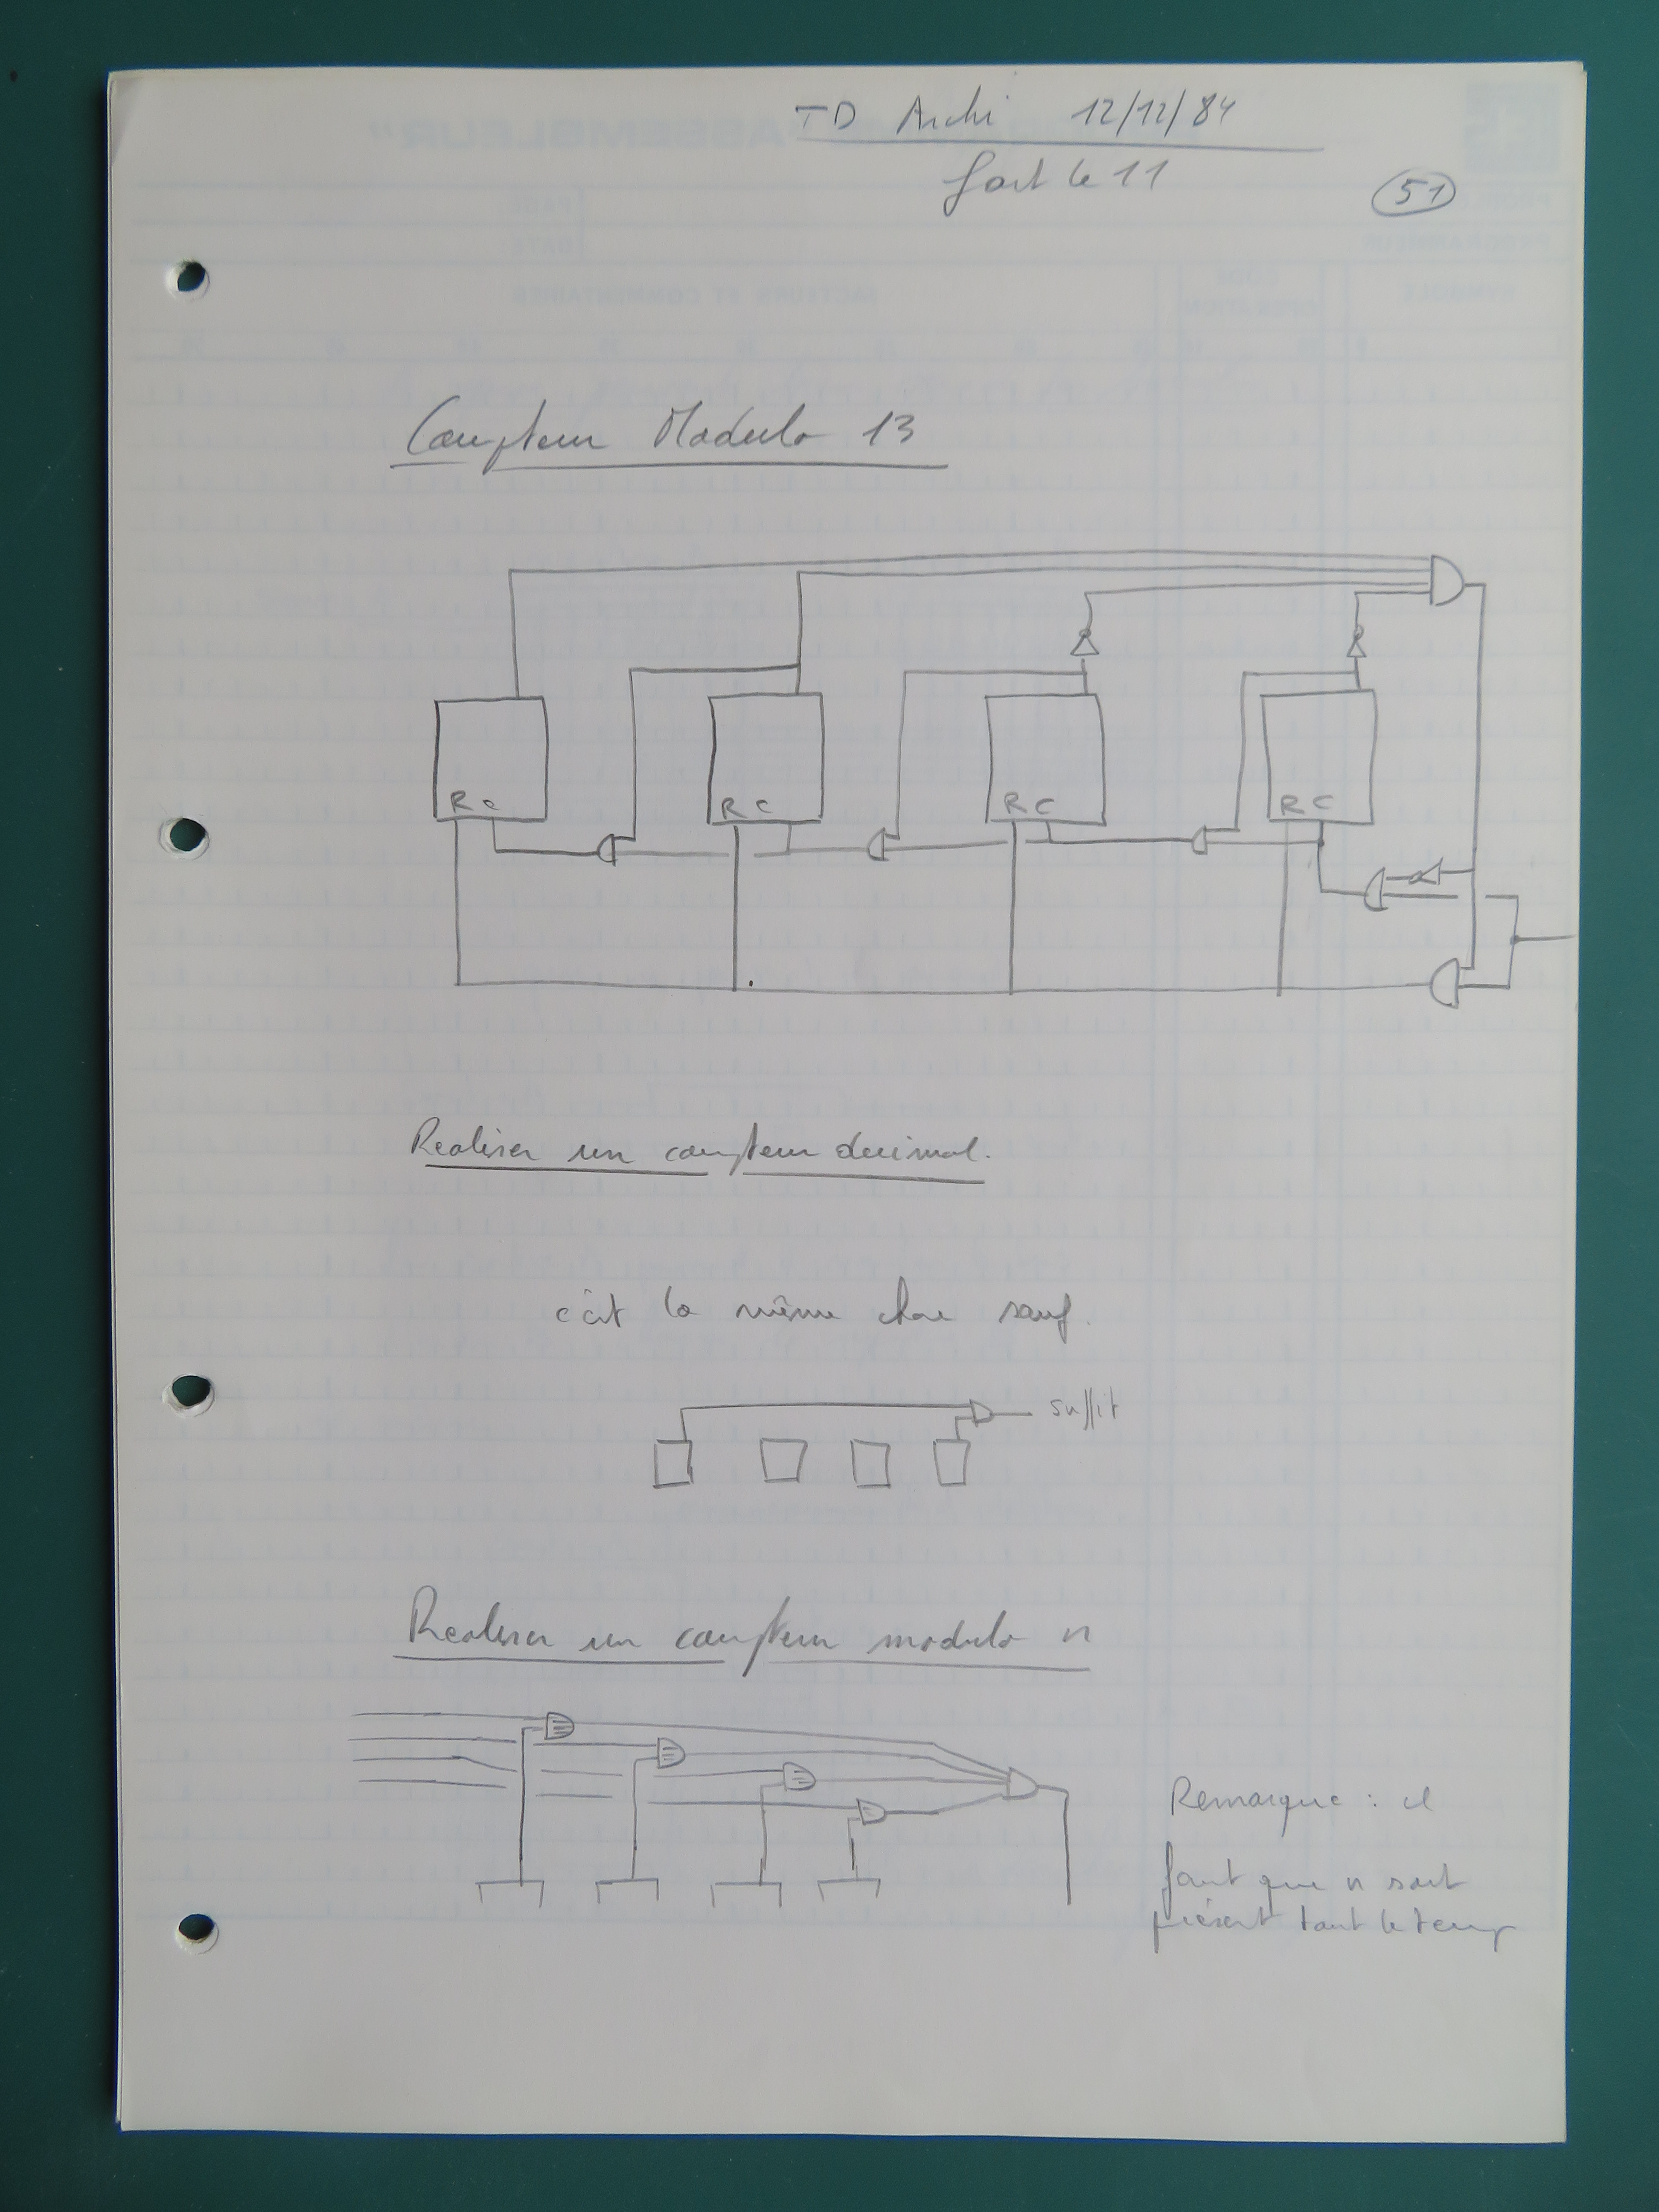 TD Archi 12/12/84
fait le 11
51
Compteur Modulo 13
R C R C R C R C
Realiser un compteur decimal.
c'est la même chose sauf.
suffit
Realiser un compteur modulo n
Remarque : il
faut que n soit
présent tout le temps